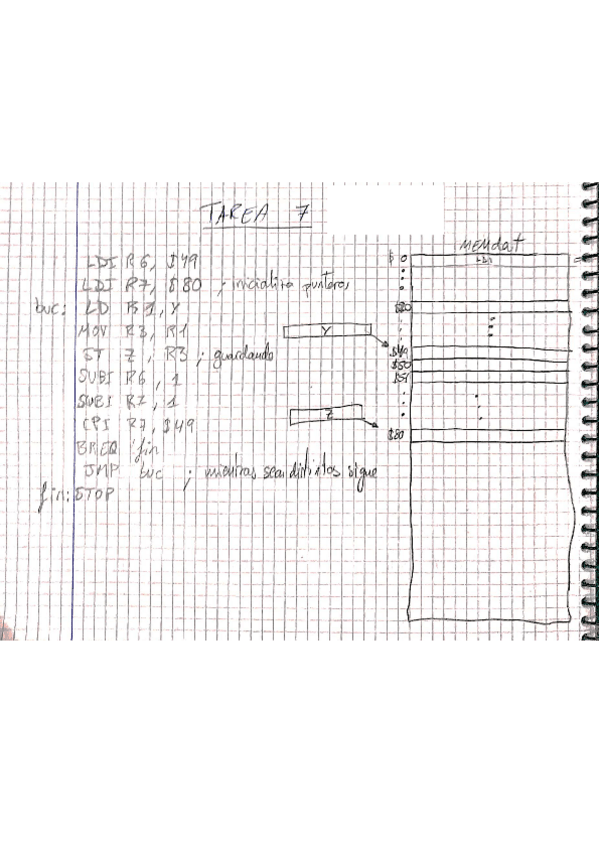 TAREA 7
LDI R6, $49
LDI R7, $80 ; inicializa punteros
buc: LD R1, Y
MOV R3, R1
ST Z, R3 ; guardando
SUBI R6, 1
SUBI R7, 1
CPI R7, $49
BREQ fin
JMP buc ; mientras sean distintos sigue
fin: STOP
Y
Z
MEMdat
$0
$20
$49
$50
$51
$80